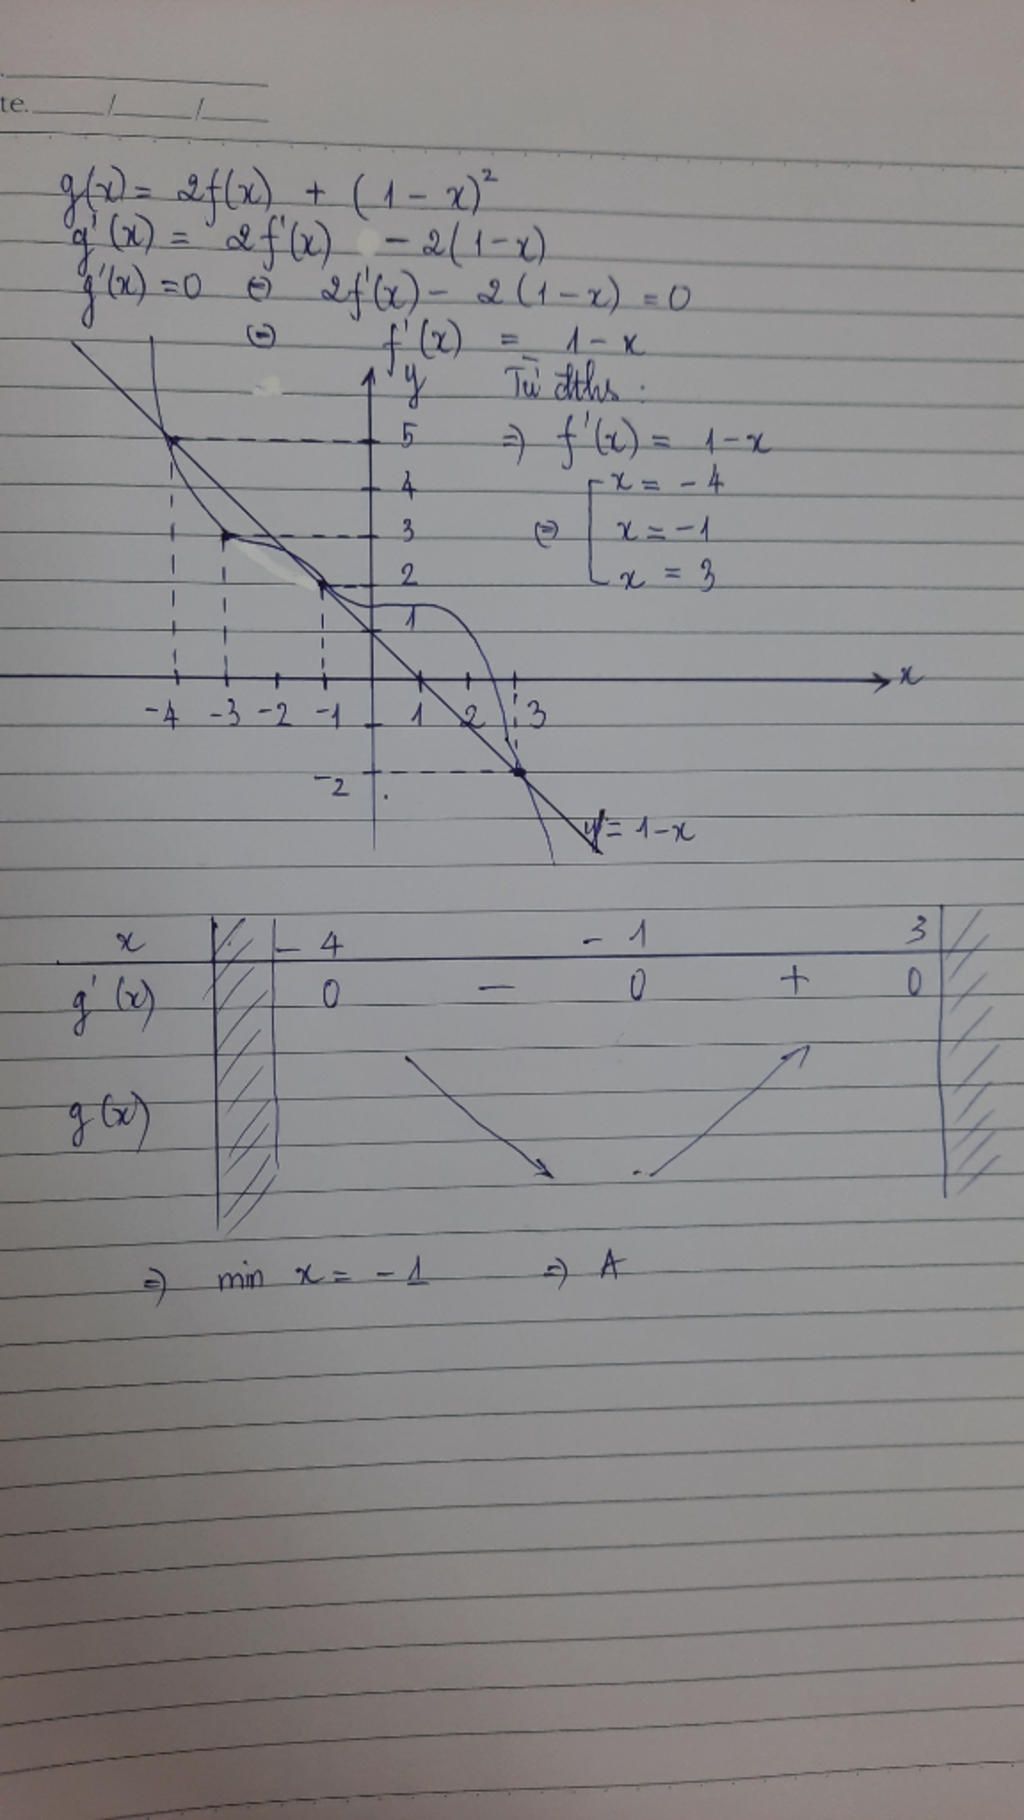 te. / /
g(x) = 2f(x) + (1 - x)²
g'(x) = 2f'(x) - 2(1-x)
g'(x) = 0 ⇔ 2f'(x) - 2(1-x) = 0
⇔ f'(x) = 1-x
y Từ đths :
5 ⇒ f'(x) = 1-x
4 x = -4
3 ⇔ x = -1
2 x = 3
1
x
-4 -3 -2 -1 1 2 3
-2
y = 1-x
x -4 -1 3
g'(x) 0 - 0 + 0
g(x)
⇒ min x = -1 ⇒ A